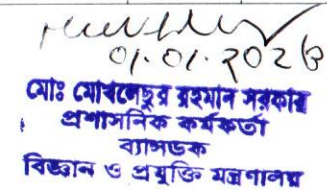 01.01.2023
মোঃ মোখলেছুর রহমান সরকার
প্রশাসনিক কর্মকর্তা
ব্যান্সডক
বিজ্ঞান ও প্রযুক্তি মন্ত্রণালয়